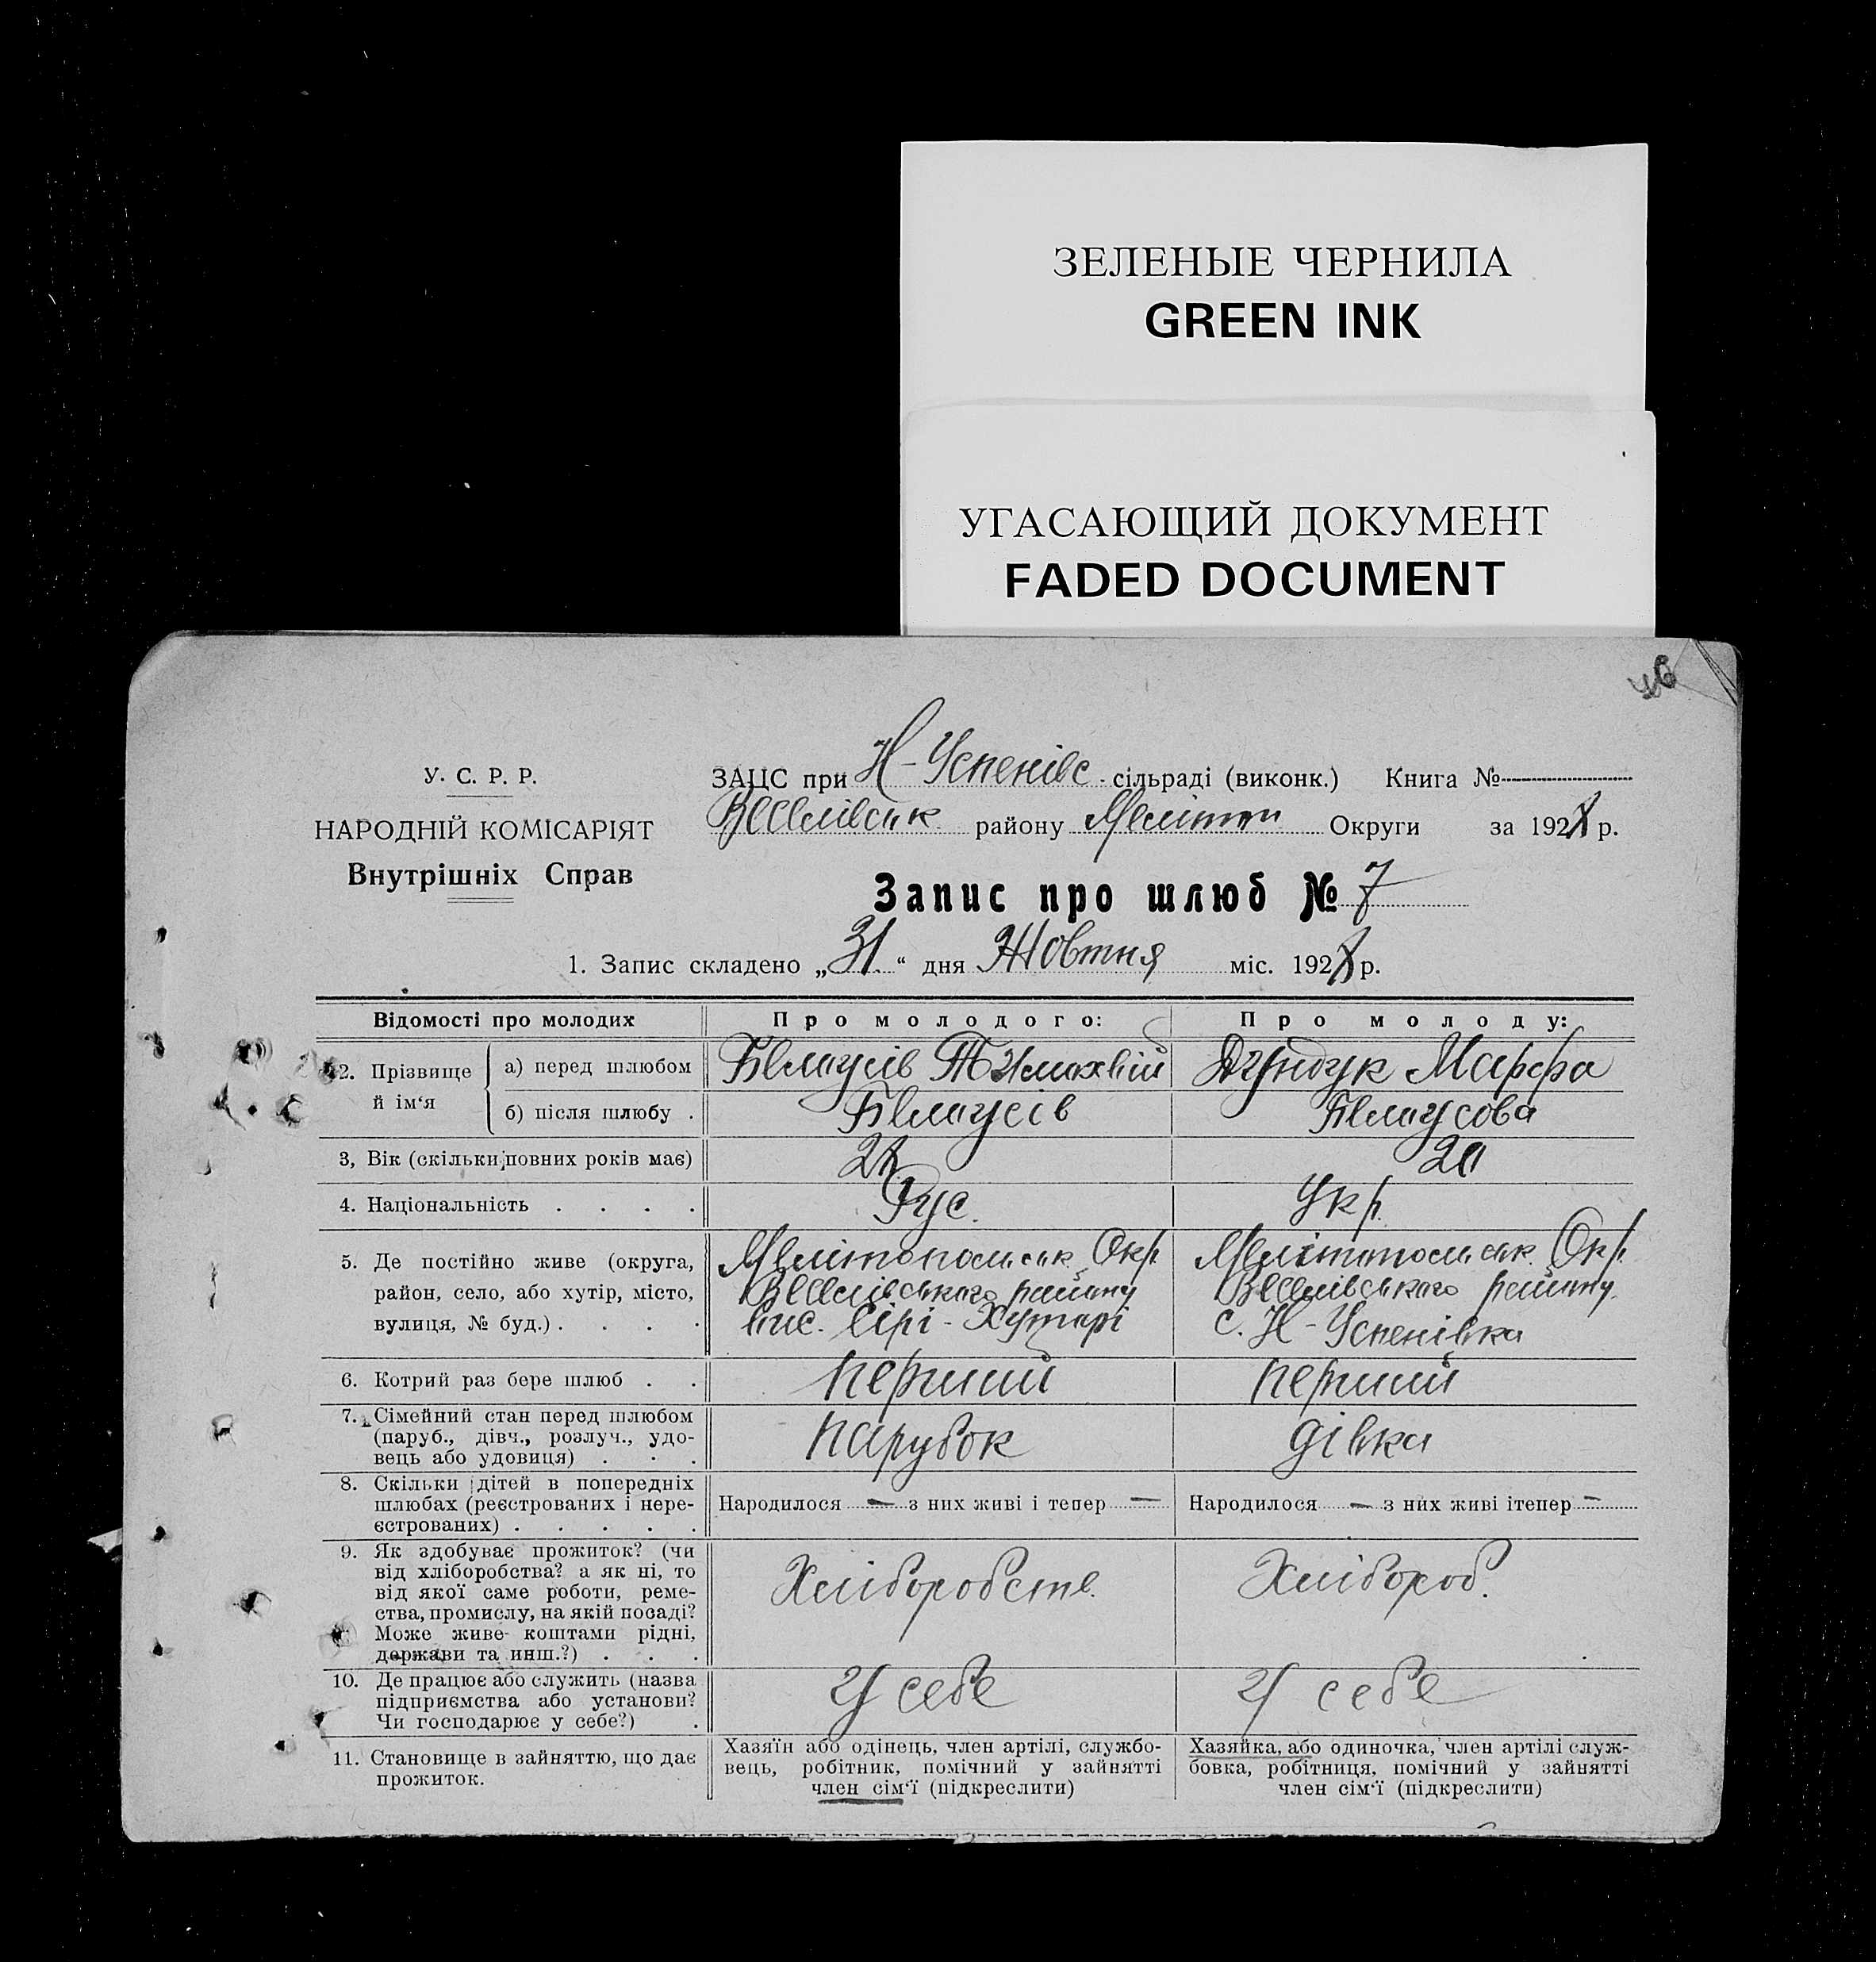 ЗЕЛЕНЫЕ ЧЕРНИЛА
GREEN INK
УГАСАЮЩИЙ ДОКУМЕНТ
FADED DOCUMENT
46
У. С. Р. Р.
НАРОДНІЙ КОМІСАРІЯТ
Внутрішніх Справ
ЗАЦС при Н-Успенівс. сільраді (виконк.) Книга №
Веселівськ району Меліт Округи за 192 р.
Запис про шлюб № 7
1. Запис складено „31“ дня Жовтня міс. 192 р.
Відомості про молодих
Про молодого:
Про молоду:
2. Прізвище й ім‘я
а) перед шлюбом
Білоусів Тимохвій
Дундук Марфа
б) після шлюбу .
Білоусів
Білоусова
3, Вік (скільки повних років має)
20
4. Національність . . . .
Рус.
Укр.
5. Де постійно живе (округа,
район, село, або хутір, місто,
вулиця, № буд.) . . . .
Мелітопольськ Окр.
Веселівського району
вис. Сірі-Хуторі
Мелітопольськ. Окр.
Веселівського району.
с. Н-Успенівка
6. Котрий раз бере шлюб . .
перший
перший
7. Сімейний стан перед шлюбом
(паруб., дівч., розлуч., удо-
вець або удовиця) . . .
парубок
дівка
8. Скільки дітей в попередніх
шлюбах (реєстрованих і нере-
єстрованих) . . . . .
Народилося — з них живі і тепер —
Народилося — з них живі ітепер —
9. Як здобуває прожиток? (чи
від хліборобства? а як ні, то
від якої саме роботи, реме-
ства, промислу, на якій посаді?
Може живе коштами рідні,
держави та инш.?) . . .
Хліборобств.
Хлібороб.
10. Де працює або служить (назва
підприємства або установи?
Чи господарює у себе?) .
У себе
У себе
11. Становище в зайняттю, що дає
прожиток.
Хазяїн або одінець, член артілі, службо-
вець, робітник, помічний у зайнятті
член сім‘ї (підкреслити)
Хазяйка, або одиночка, член артілі служ-
бовка, робітниця, помічний у зайнятті
член сім‘ї (підкреслити)